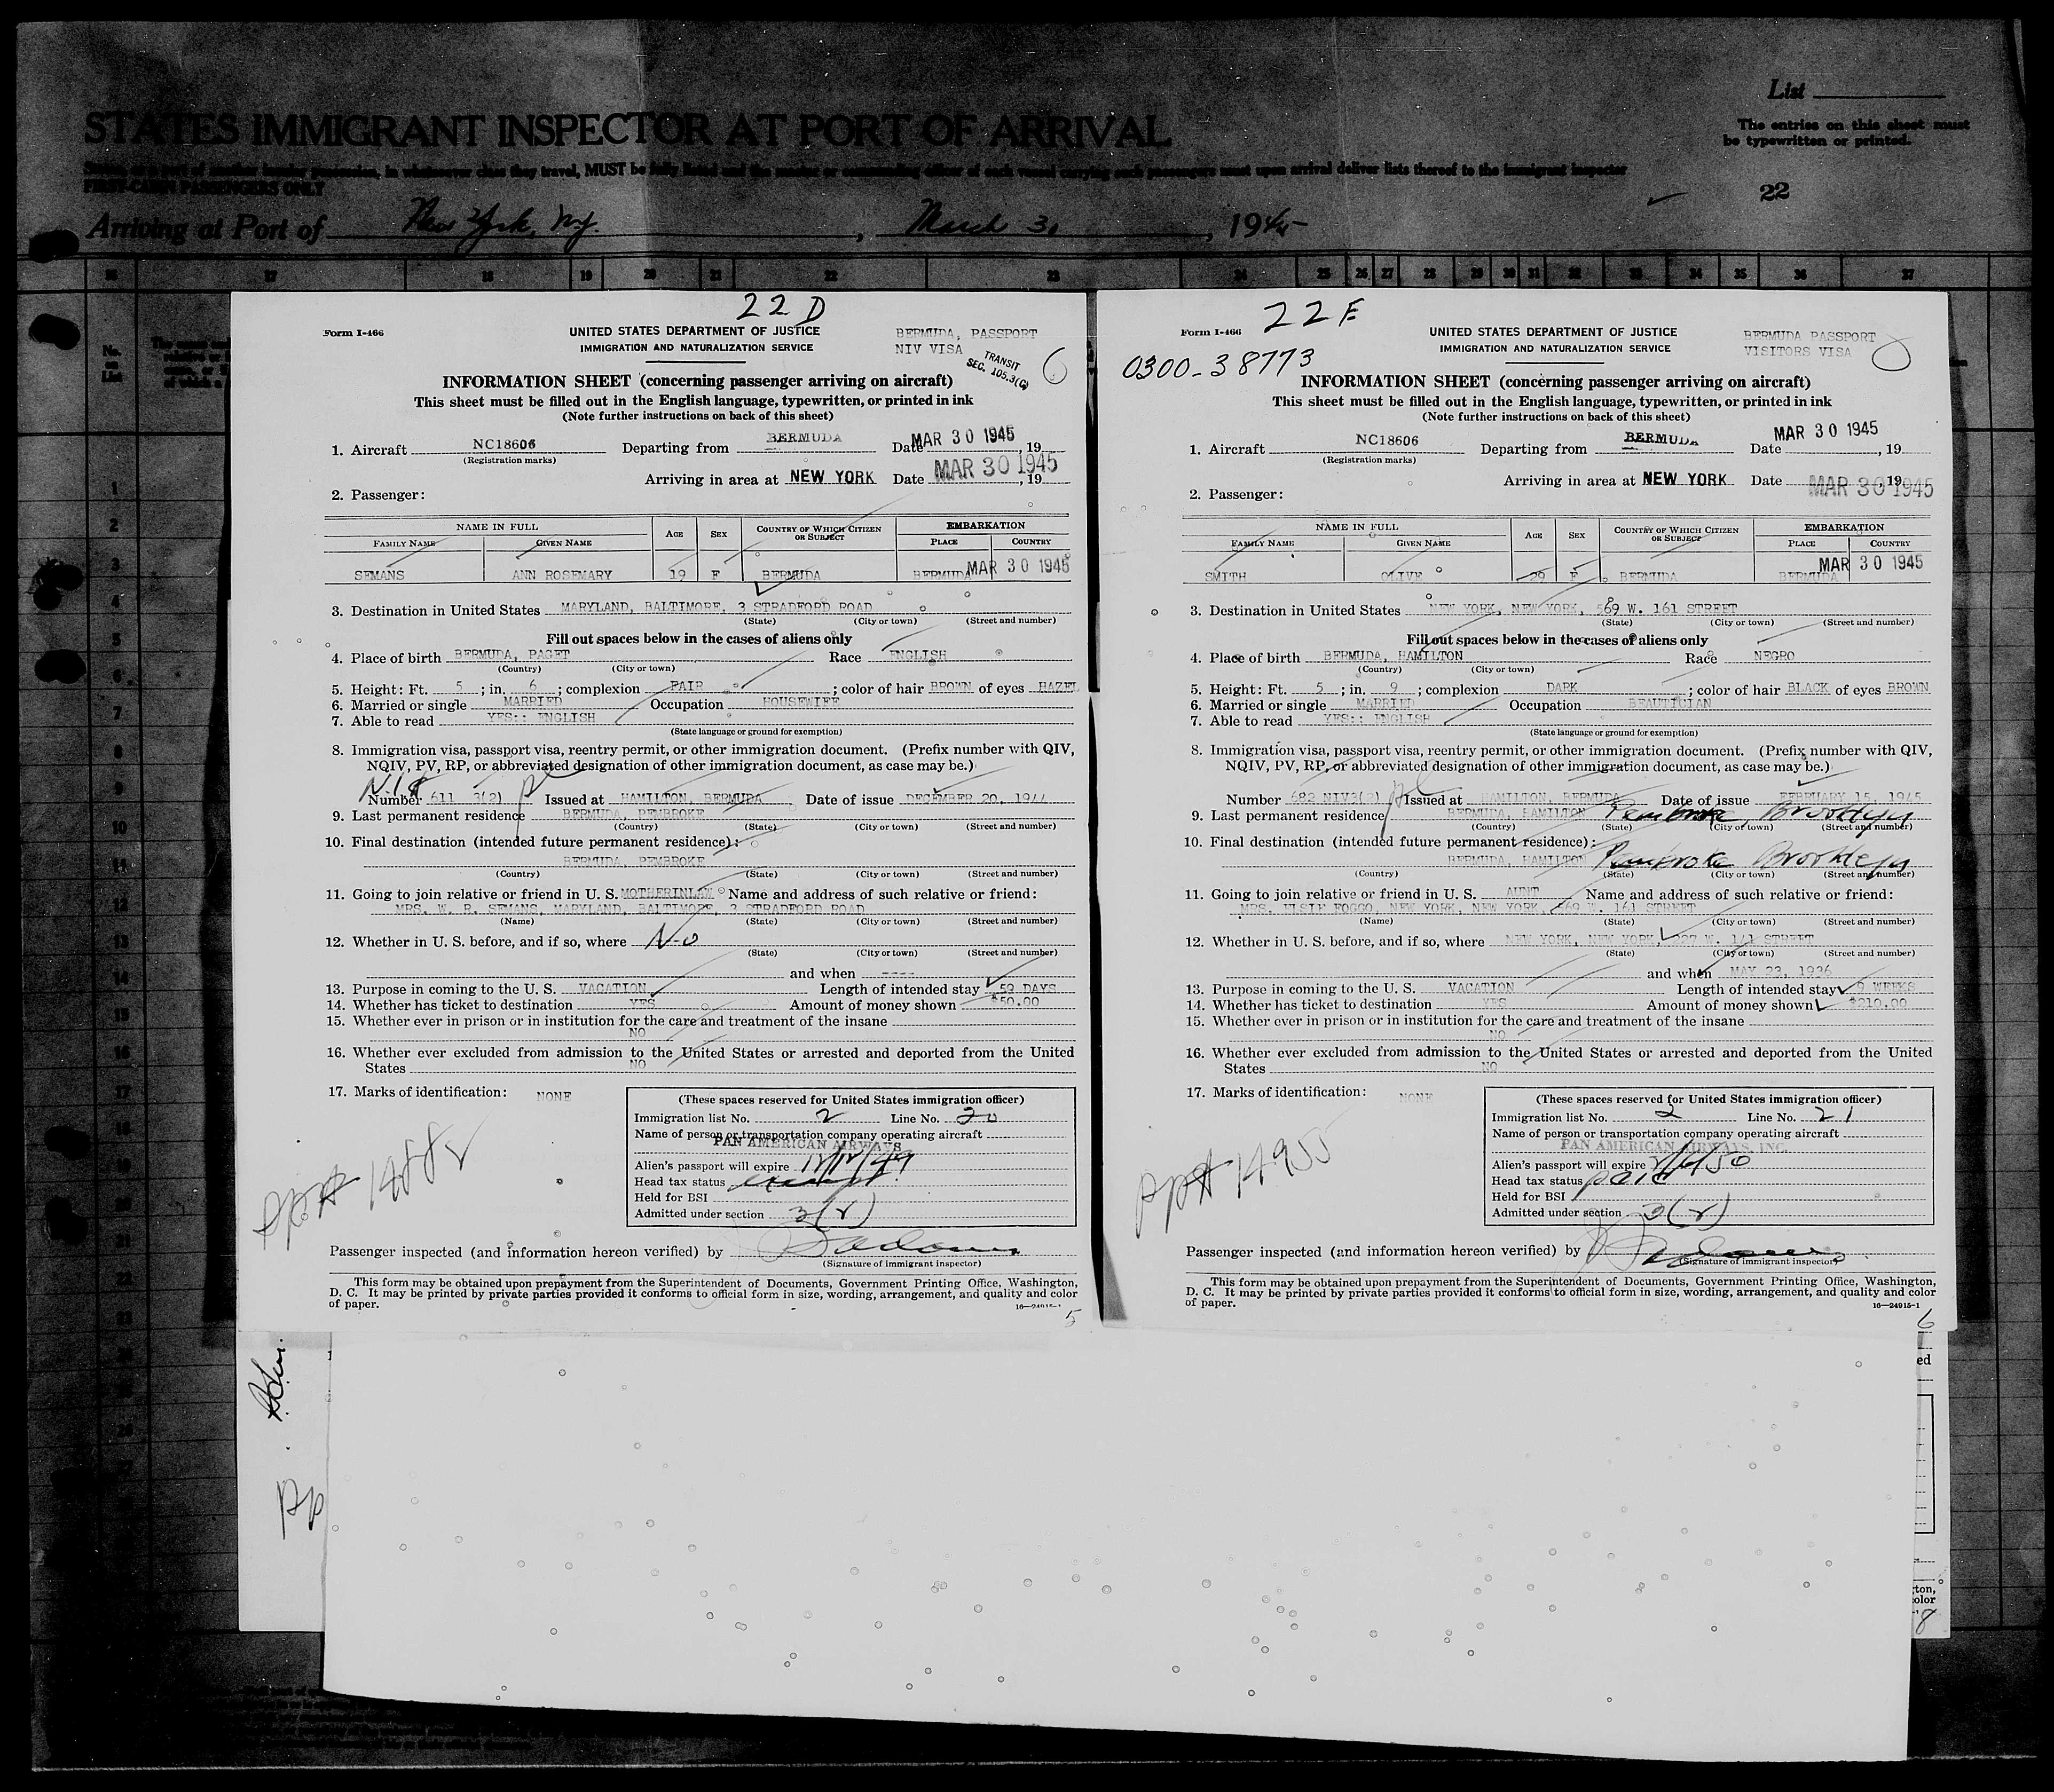 List
STATES IMMIGRANT INSPECTOR AT PORT OF ARRIVAL
The entries on this sheet must
be typewritten or printed.
FIRST-CABIN PASSENGERS ONLY
22
Arriving at Port of New York, N.Y. , March 30 , 1945
16 17 18 19 20 21 22 23 24 25 26 27 28 29 30 31 32 33 34 35 36 37
22 D
Form I-466
UNITED STATES DEPARTMENT OF JUSTICE
IMMIGRATION AND NATURALIZATION SERVICE
BERMUDA, PASSPORT
NIV VISA
TRANSIT
SEC. 105.3(C)
INFORMATION SHEET (concerning passenger arriving on aircraft)
This sheet must be filled out in the English language, typewritten, or printed in ink
(Note further instructions on back of this sheet)
1. Aircraft NC18606 Departing from BERMUDA Date MAR 30 1945 , 19
(Registration marks)
Arriving in area at NEW YORK Date MAR 30 1945 , 19
2. Passenger:
NAME IN FULL AGE SEX COUNTRY OF WHICH CITIZEN OR SUBJECT EMBARKATION
FAMILY NAME GIVEN NAME PLACE COUNTRY
SEMANS ANN ROSEMARY 19 F BERMUDA BERMUDA MAR 30 1945
3. Destination in United States MARYLAND, BALTIMORE, 3 STRADFORD ROAD
(State) (City or town) (Street and number)
Fill out spaces below in the cases of aliens only
4. Place of birth BERMUDA, PAGET Race ENGLISH
(Country) (City or town)
5. Height: Ft. 5 ; in. 6 ; complexion FAIR ; color of hair BROWN of eyes HAZEL
6. Married or single MARRIED Occupation HOUSEWIFE
7. Able to read YES:: ENGLISH
(State language or ground for exemption)
8. Immigration visa, passport visa, reentry permit, or other immigration document. (Prefix number with QIV,
NQIV, PV, RP, or abbreviated designation of other immigration document, as case may be.)
Number 611 3(2) Issued at HAMILTON, BERMUDA Date of issue DECEMBER 20, 1944
9. Last permanent residence BERMUDA, PEMBROKE
(Country) (State) (City or town) (Street and number)
10. Final destination (intended future permanent residence):
BERMUDA, PEMBROKE
(Country) (State) (City or town) (Street and number)
11. Going to join relative or friend in U. S. MOTHERINLAW Name and address of such relative or friend:
MRS. W. R. SEMANS, MARYLAND, BALTIMORE, 3 STRADFORD ROAD
(Name) (State) (City or town) (Street and number)
12. Whether in U. S. before, and if so, where No
(State) (City or town) (Street and number)
and when ----
13. Purpose in coming to the U. S. VACATION Length of intended stay 59 DAYS
14. Whether has ticket to destination YES Amount of money shown $50.00
15. Whether ever in prison or in institution for the care and treatment of the insane
NO
16. Whether ever excluded from admission to the United States or arrested and deported from the United
States NO
17. Marks of identification: NONE
(These spaces reserved for United States immigration officer)
Immigration list No. 2 Line No. 20
Name of person or transportation company operating aircraft
PAN AMERICAN AIRWAYS
Alien's passport will expire 12/12/49
Head tax status exempt
Held for BSI
Admitted under section 3(2)
pp# 14882
Passenger inspected (and information hereon verified) by
(Signature of immigrant inspector)
This form may be obtained upon prepayment from the Superintendent of Documents, Government Printing Office, Washington,
D. C. It may be printed by private parties provided it conforms to official form in size, wording, arrangement, and quality and color
of paper.
5
22 E
Form I-466
0300-38773
UNITED STATES DEPARTMENT OF JUSTICE
IMMIGRATION AND NATURALIZATION SERVICE
BERMUDA PASSPORT
VISITORS VISA
INFORMATION SHEET (concerning passenger arriving on aircraft)
This sheet must be filled out in the English language, typewritten, or printed in ink
(Note further instructions on back of this sheet)
1. Aircraft NC18606 Departing from BERMUDA Date MAR 30 1945 , 19
(Registration marks)
Arriving in area at NEW YORK Date MAR 30 1945 , 19
2. Passenger:
NAME IN FULL AGE SEX COUNTRY OF WHICH CITIZEN OR SUBJECT EMBARKATION
FAMILY NAME GIVEN NAME PLACE COUNTRY
SMITH OLIVE 29 F BERMUDA BERMUDA MAR 30 1945
3. Destination in United States NEW YORK, NEW YORK, 569 W. 161 STREET
(State) (City or town) (Street and number)
Fill out spaces below in the cases of aliens only
4. Place of birth BERMUDA, HAMILTON Race NEGRO
(Country) (City or town)
5. Height: Ft. 5 ; in. 9 ; complexion DARK ; color of hair BLACK of eyes BROWN
6. Married or single MARRIED Occupation BEAUTICIAN
7. Able to read YES:: ENGLISH
(State language or ground for exemption)
8. Immigration visa, passport visa, reentry permit, or other immigration document. (Prefix number with QIV,
NQIV, PV, RP, or abbreviated designation of other immigration document, as case may be.)
Number 682 NIV3(2) Issued at HAMILTON, BERMUDA Date of issue FEBRUARY 15, 1945
9. Last permanent residence BERMUDA, HAMILTON Pembroke, Brooklyn
(Country) (State) (City or town) (Street and number)
10. Final destination (intended future permanent residence):
BERMUDA, HAMILTON Pembroke Brooklyn
(Country) (State) (City or town) (Street and number)
11. Going to join relative or friend in U. S. AUNT Name and address of such relative or friend:
MRS. ELSIE FOGGO, NEW YORK, NEW YORK, 569 W. 161 STREET
(Name) (State) (City or town) (Street and number)
12. Whether in U. S. before, and if so, where NEW YORK, NEW YORK, W. 141 STREET
(State) (City or town) (Street and number)
and when MAY 23, 1936
13. Purpose in coming to the U. S. VACATION Length of intended stay 9 WEEKS
14. Whether has ticket to destination YES Amount of money shown $210.00
15. Whether ever in prison or in institution for the care and treatment of the insane
NO
16. Whether ever excluded from admission to the United States or arrested and deported from the United
States NO
17. Marks of identification: NONE
(These spaces reserved for United States immigration officer)
Immigration list No. 2 Line No. 21
Name of person or transportation company operating aircraft
PAN AMERICAN AIRWAYS, INC.
Alien's passport will expire 2/6/50
Head tax status paid
Held for BSI
Admitted under section 3(2)
pp# 14955
Passenger inspected (and information hereon verified) by
(Signature of immigrant inspector)
This form may be obtained upon prepayment from the Superintendent of Documents, Government Printing Office, Washington,
D. C. It may be printed by private parties provided it conforms to official form in size, wording, arrangement, and quality and color
of paper.
16—24915-1
6
ed
ton,
olor
8